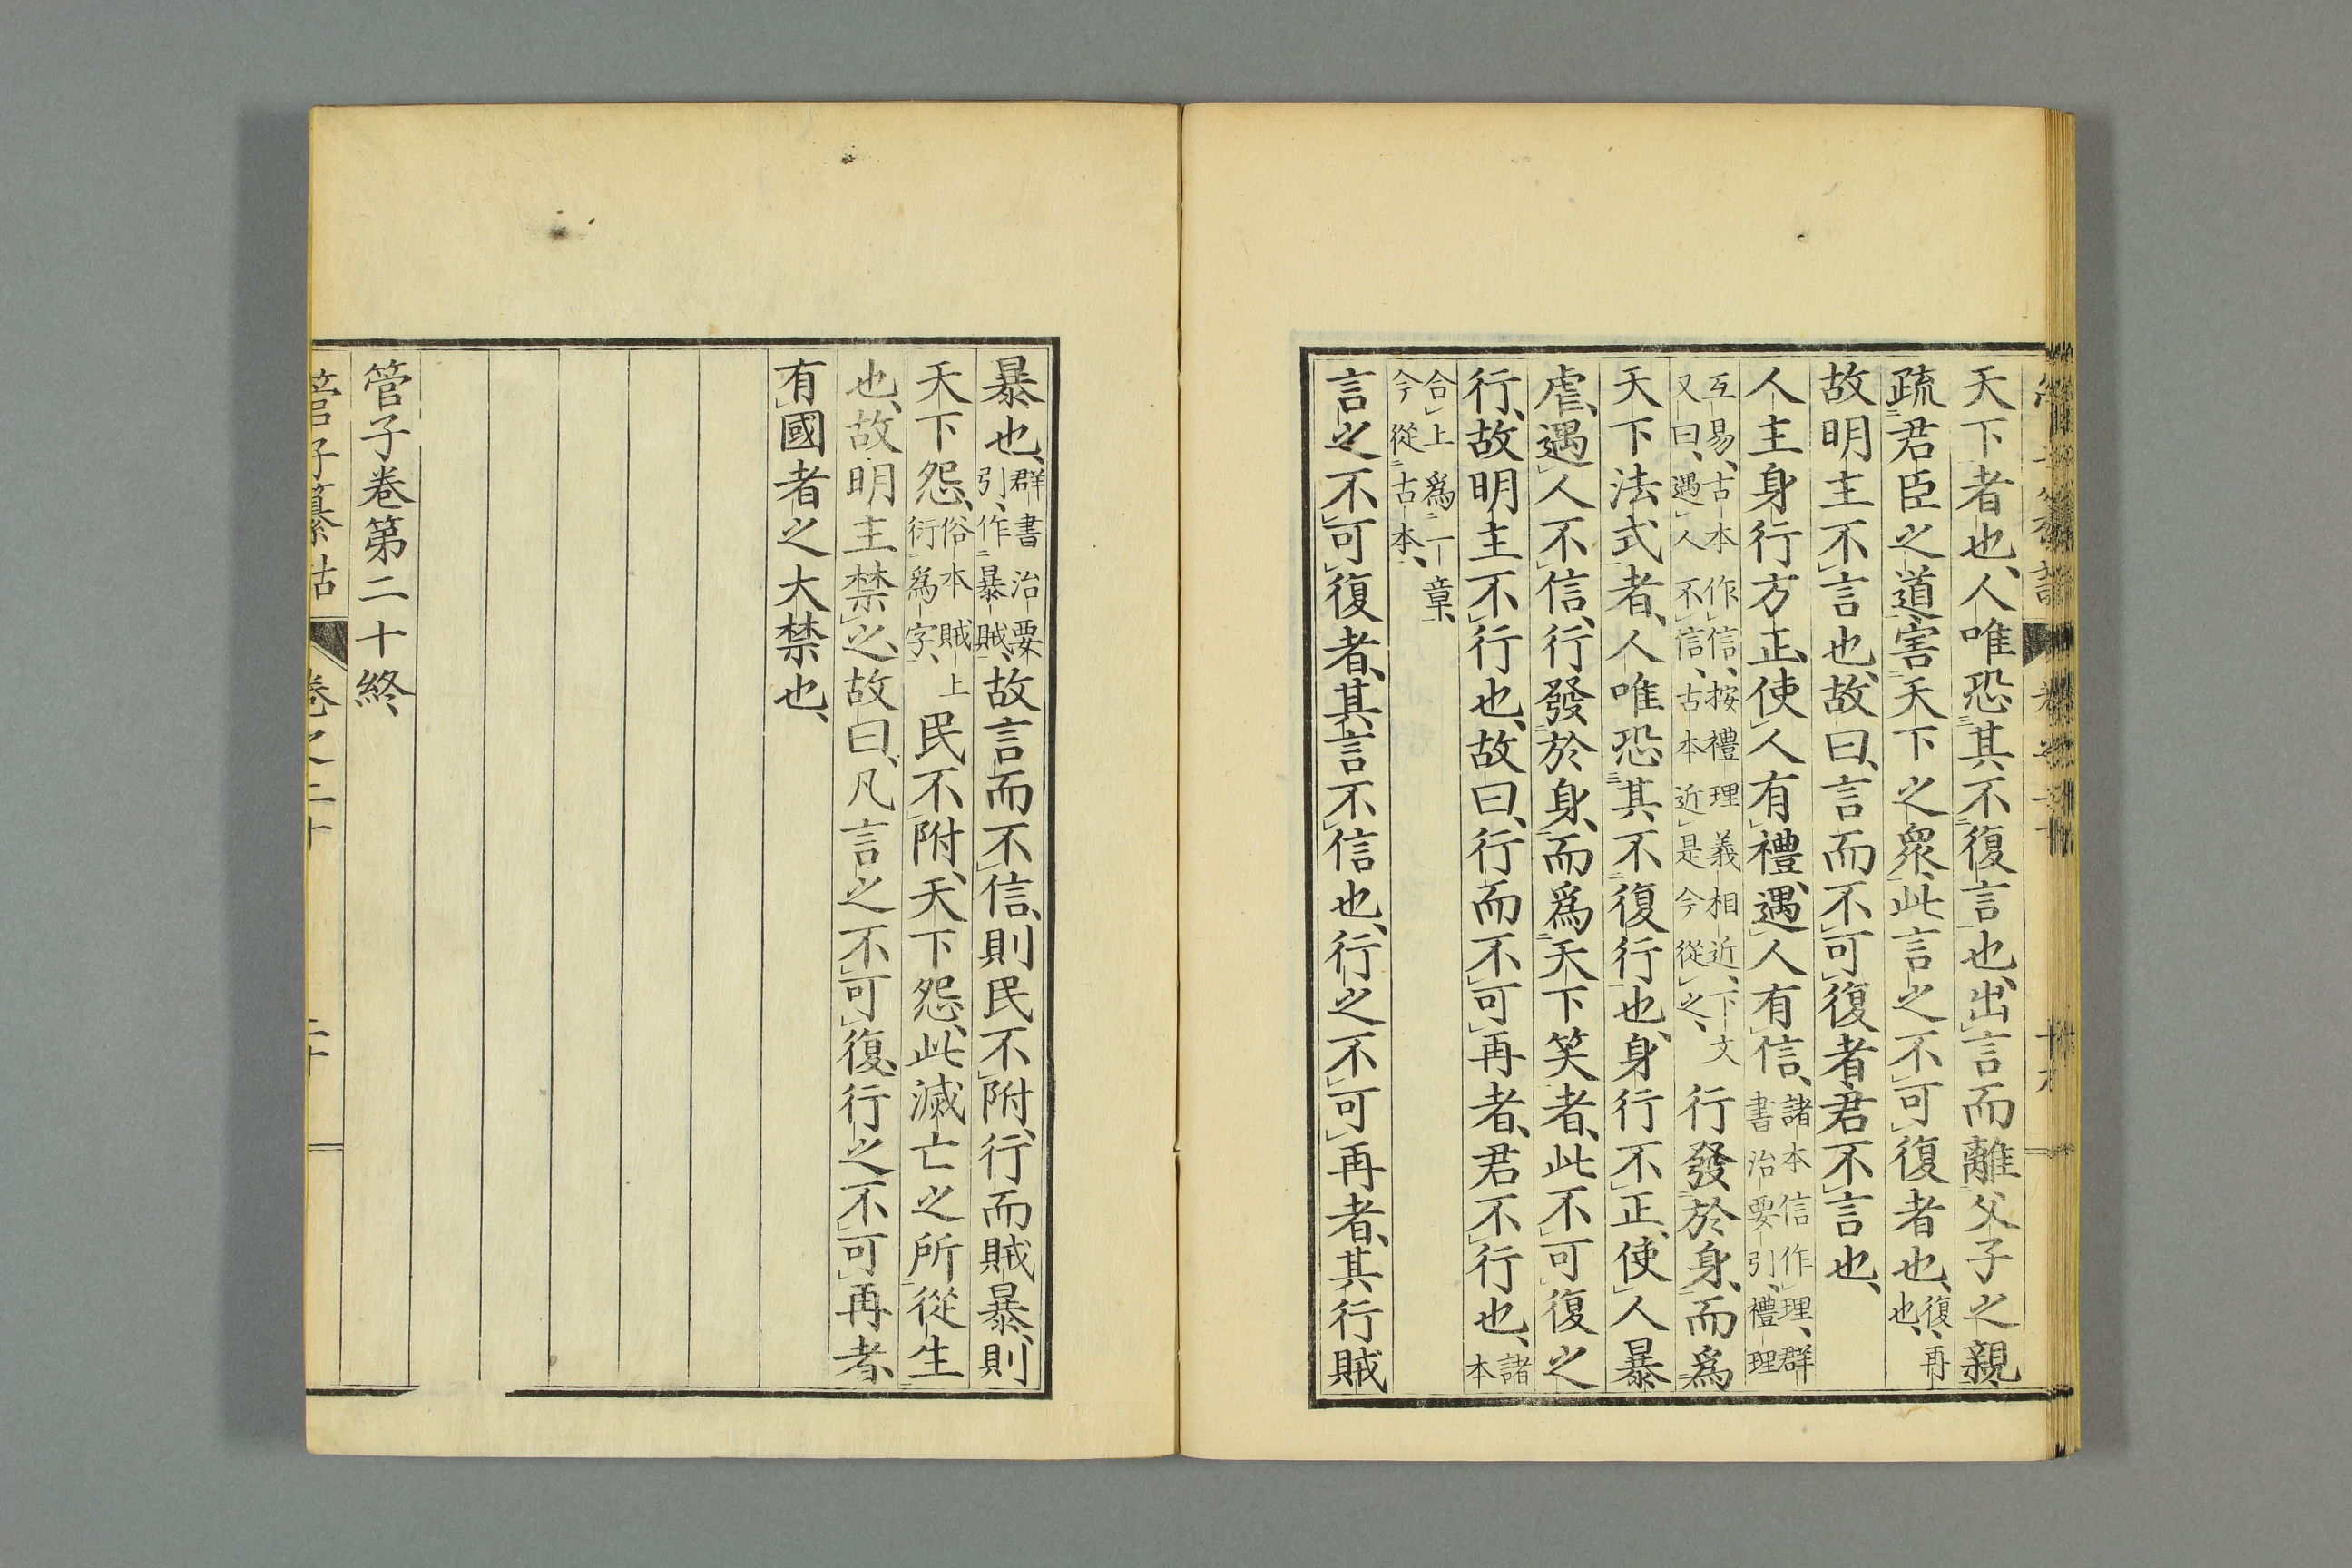 天下者也、人唯恐其不復言也、出言而離父子之親、
疏君臣之道、害天下之衆、此言之不可復者也、復、再也、
故明主不言也、故曰、言而不可復者、君不言也、
人主身行方正、使人有禮、遇人有信、諸本信作理、群書治要引、禮理
互易、古本作信、按禮理義相近、下文又曰、遇人不信、古本近是、今從之、行發於身、而爲
天下法式者、人唯恐其不復行也、身行不正、使人暴
虐、遇人不信、行發於身、而爲天下笑者、此不可復之
行、故明主不行也、故曰、行而不可再者、君不行也、諸本
合上爲一章、今從古本、
言之不可復者、其言不信也、行之不可再者、其行賊
暴也、群書治要引、作暴賊、故言而不信、則民不附、行而賊暴、則
天下怨、俗本賊上衍爲字、民不附、天下怨、此滅亡之所從生
也、故明主禁之、故曰、凡言之不可復、行之不可再者、
有國者之大禁也、
管子卷第二十終
管子纂詁 卷之二十 二十